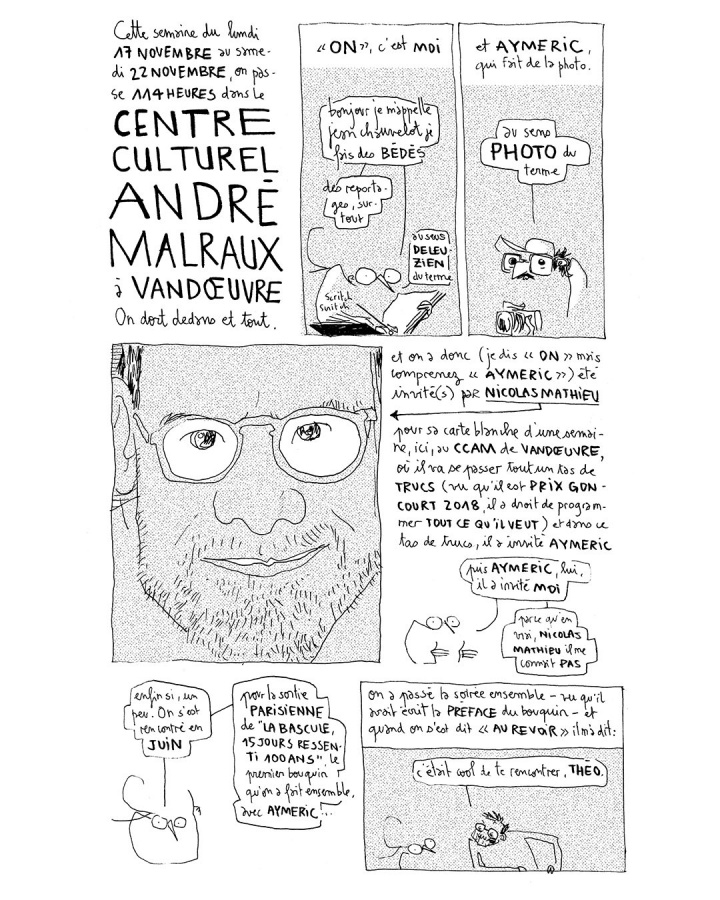 Cette semaine du lundi
17 NOVEMBRE au same-
di 22 NOVEMBRE, on pas-
se 114 HEURES dans le
CENTRE
CULTUREL
ANDRÉ
MALRAUX
à VANDŒUVRE
On dort dedans et tout.
« ON », c'est MOI
bonjour je m'appelle
jean chauvelot je
fais des BÉDÉS
des reporta-
ges, sur-
tout
au sens
DELEU-
ZIEN
du terme
Scritch
Scritch
et AYMERIC,
qui fait de la photo.
au sens
PHOTO du
terme
et on a donc (je dis « ON » mais
comprenez « AYMERIC ») été
invité(s) par NICOLAS MATHIEU
pour sa carte blanche d'une semai-
ne, ici, au CCAM de VANDŒUVRE,
où il va se passer tout un tas de
TRUCS (vu qu'il est PRIX GON-
COURT 2018, il a droit de program-
mer TOUT CE QU'IL VEUT) et dans ce
tas de trucs, il a invité AYMERIC
puis AYMERIC, lui,
il a invité MOI
parce qu'en
vrai, NICOLAS
MATHIEU il me
connait PAS
enfin si, un
peu. On s'est
rencontré en
JUIN
pour la sortie
PARISIENNE
de "LA BASCULE,
15 JOURS RESSEN-
TI 100 ANS", le
premier bouquin
qu'on a fait ensemble,
avec AYMERIC...
on a passé la soirée ensemble – vu qu'il
avait écrit la PRÉFACE du bouquin – et
quand on s'est dit « AU REVOIR » il m'a dit:
c'était cool de te rencontrer, THÉO.